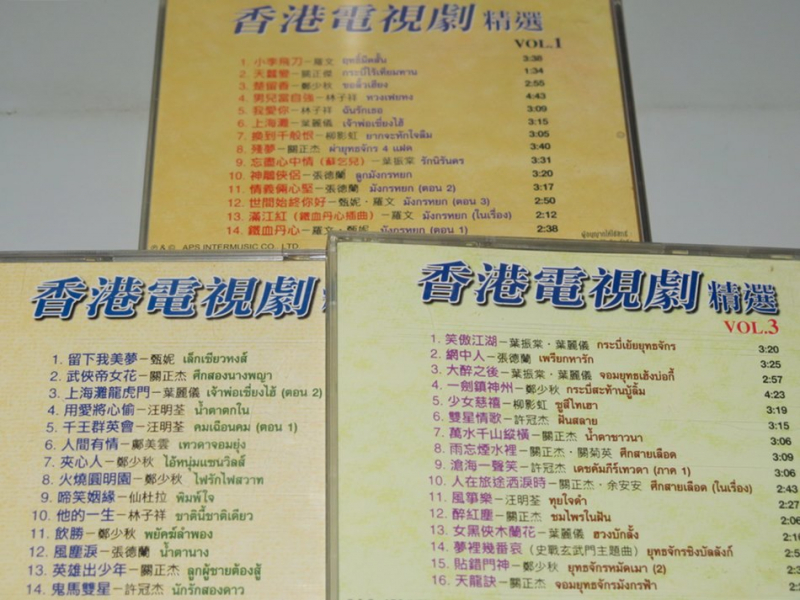 香港電視劇 精選
VOL.1
1. 小李飛刀－羅文 ฤทธิ์มีดสั้น 3:38
2. 天蠶變－關正傑 กระบี่ไร้เทียมทาน 1:34
3. 楚留香－鄭少秋 ชอลิ้วเฮียง 2:55
4. 男兒當自強－林子祥 หวงเฟยหง 4:43
5. 我愛你－林子祥 ฉันรักเธอ 3:09
6. 上海灘－葉麗儀 เจ้าพ่อเซี่ยงไฮ้ 3:15
7. 換到千般恨－柳影虹 ยากจะหักใจลืม 3:05
8. 殘夢－關正杰 ผ่ายุทธจักร 4 แฝด 3:40
9. 忘盡心中情 (蘇乞兒)－葉振棠 รักนิรันดร 3:31
10. 神鵰俠侶－張德蘭 ลูกมังกรหยก 3:20
11. 情義倆心堅－張德蘭 มังกรหยก (ตอน 2) 3:17
12. 世間始終你好－甄妮・羅文 มังกรหยก (ตอน 3) 2:50
13. 滿江紅 (鐵血丹心插曲)－羅文 มังกรหยก (ในเรื่อง) 2:12
14. 鐵血丹心－羅文・甄妮 มังกรหยก (ตอน 1) 2:38
APS INTERMUSIC CO. LTD.
香港電視劇
1. 留下我美夢－甄妮 เล็กเซียวหงส์
2. 武俠帝女花－關正杰 ศึกสองนางพญา
3. 上海灘龍虎門－葉麗儀 เจ้าพ่อเซี่ยงไฮ้ (ตอน 2)
4. 用愛將心偷－汪明荃 น้ำตาตกใน
5. 千王群英會－汪明荃 คมเฉือนคม (ตอน 1)
6. 人間有情－鄺美雲 เทวดาจอมยุ่ง
7. 夾心人－鄭少秋 ไอ้หนุ่มแซนวิลส์
8. 火燒圓明園－鄭少秋 ไฟรักไฟสวาท
9. 啼笑姻緣－仙杜拉 พิมพ์ใจ
10. 他的一生－林子祥 ชาตินี้ชาติเดียว
11. 飲勝－鄭少秋 พยัคฆ์ลำพอง
12. 風塵淚－張德蘭 น้ำตานาง
13. 英雄出少年－關正杰 ลูกผู้ชายต้องสู้
14. 鬼馬雙星－許冠杰 นักรักสองดาว
香港電視劇 精選
VOL.3
1. 笑傲江湖－葉振棠・葉麗儀 กระบี่เย้ยยุทธจักร 3:20
2. 網中人－張德蘭 เพรียกหารัก 3:25
3. 大醉之後－葉振棠・葉麗儀 จอมยุทธเฮ้งบ่อกี้ 2:57
4. 一劍鎮神州－鄭少秋 กระบี่สะท้านบู๊ลิ้ม 4:23
5. 少女慈禧－柳影虹 ซูสีไทเฮา 3:19
6. 雙星情歌－許冠杰 ฝันสลาย 3:15
7. 萬水千山縱橫－關正杰 น้ำตาชาวนา 3:06
8. 雨忘煙水裡－關正杰・關菊英 ศึกสายเลือด 3:09
9. 滄海一聲笑－許冠杰 เดชคัมภีร์เทวดา (ภาค 1) 3:06
10. 人在旅途洒淚時－關正杰・余安安 ศึกสายเลือด (ในเรื่อง) 2:43
11. 風箏樂－汪明荃 หุยใจดำ
12. 醉紅塵－關正杰 ชมไพรในฝัน
13. 女黑俠木蘭花－葉麗儀 ฮวงบักลั้ง
14. 夢裡幾番哀 (史戰玄武門主題曲) ยุทธจักรชิงบัลลังก์
15. 貼錯門神－鄭少秋 ยุทธจักรหมัดเมา (2)
16. 天龍訣－關正杰 จอมยุทธจักรมังกรฟ้า